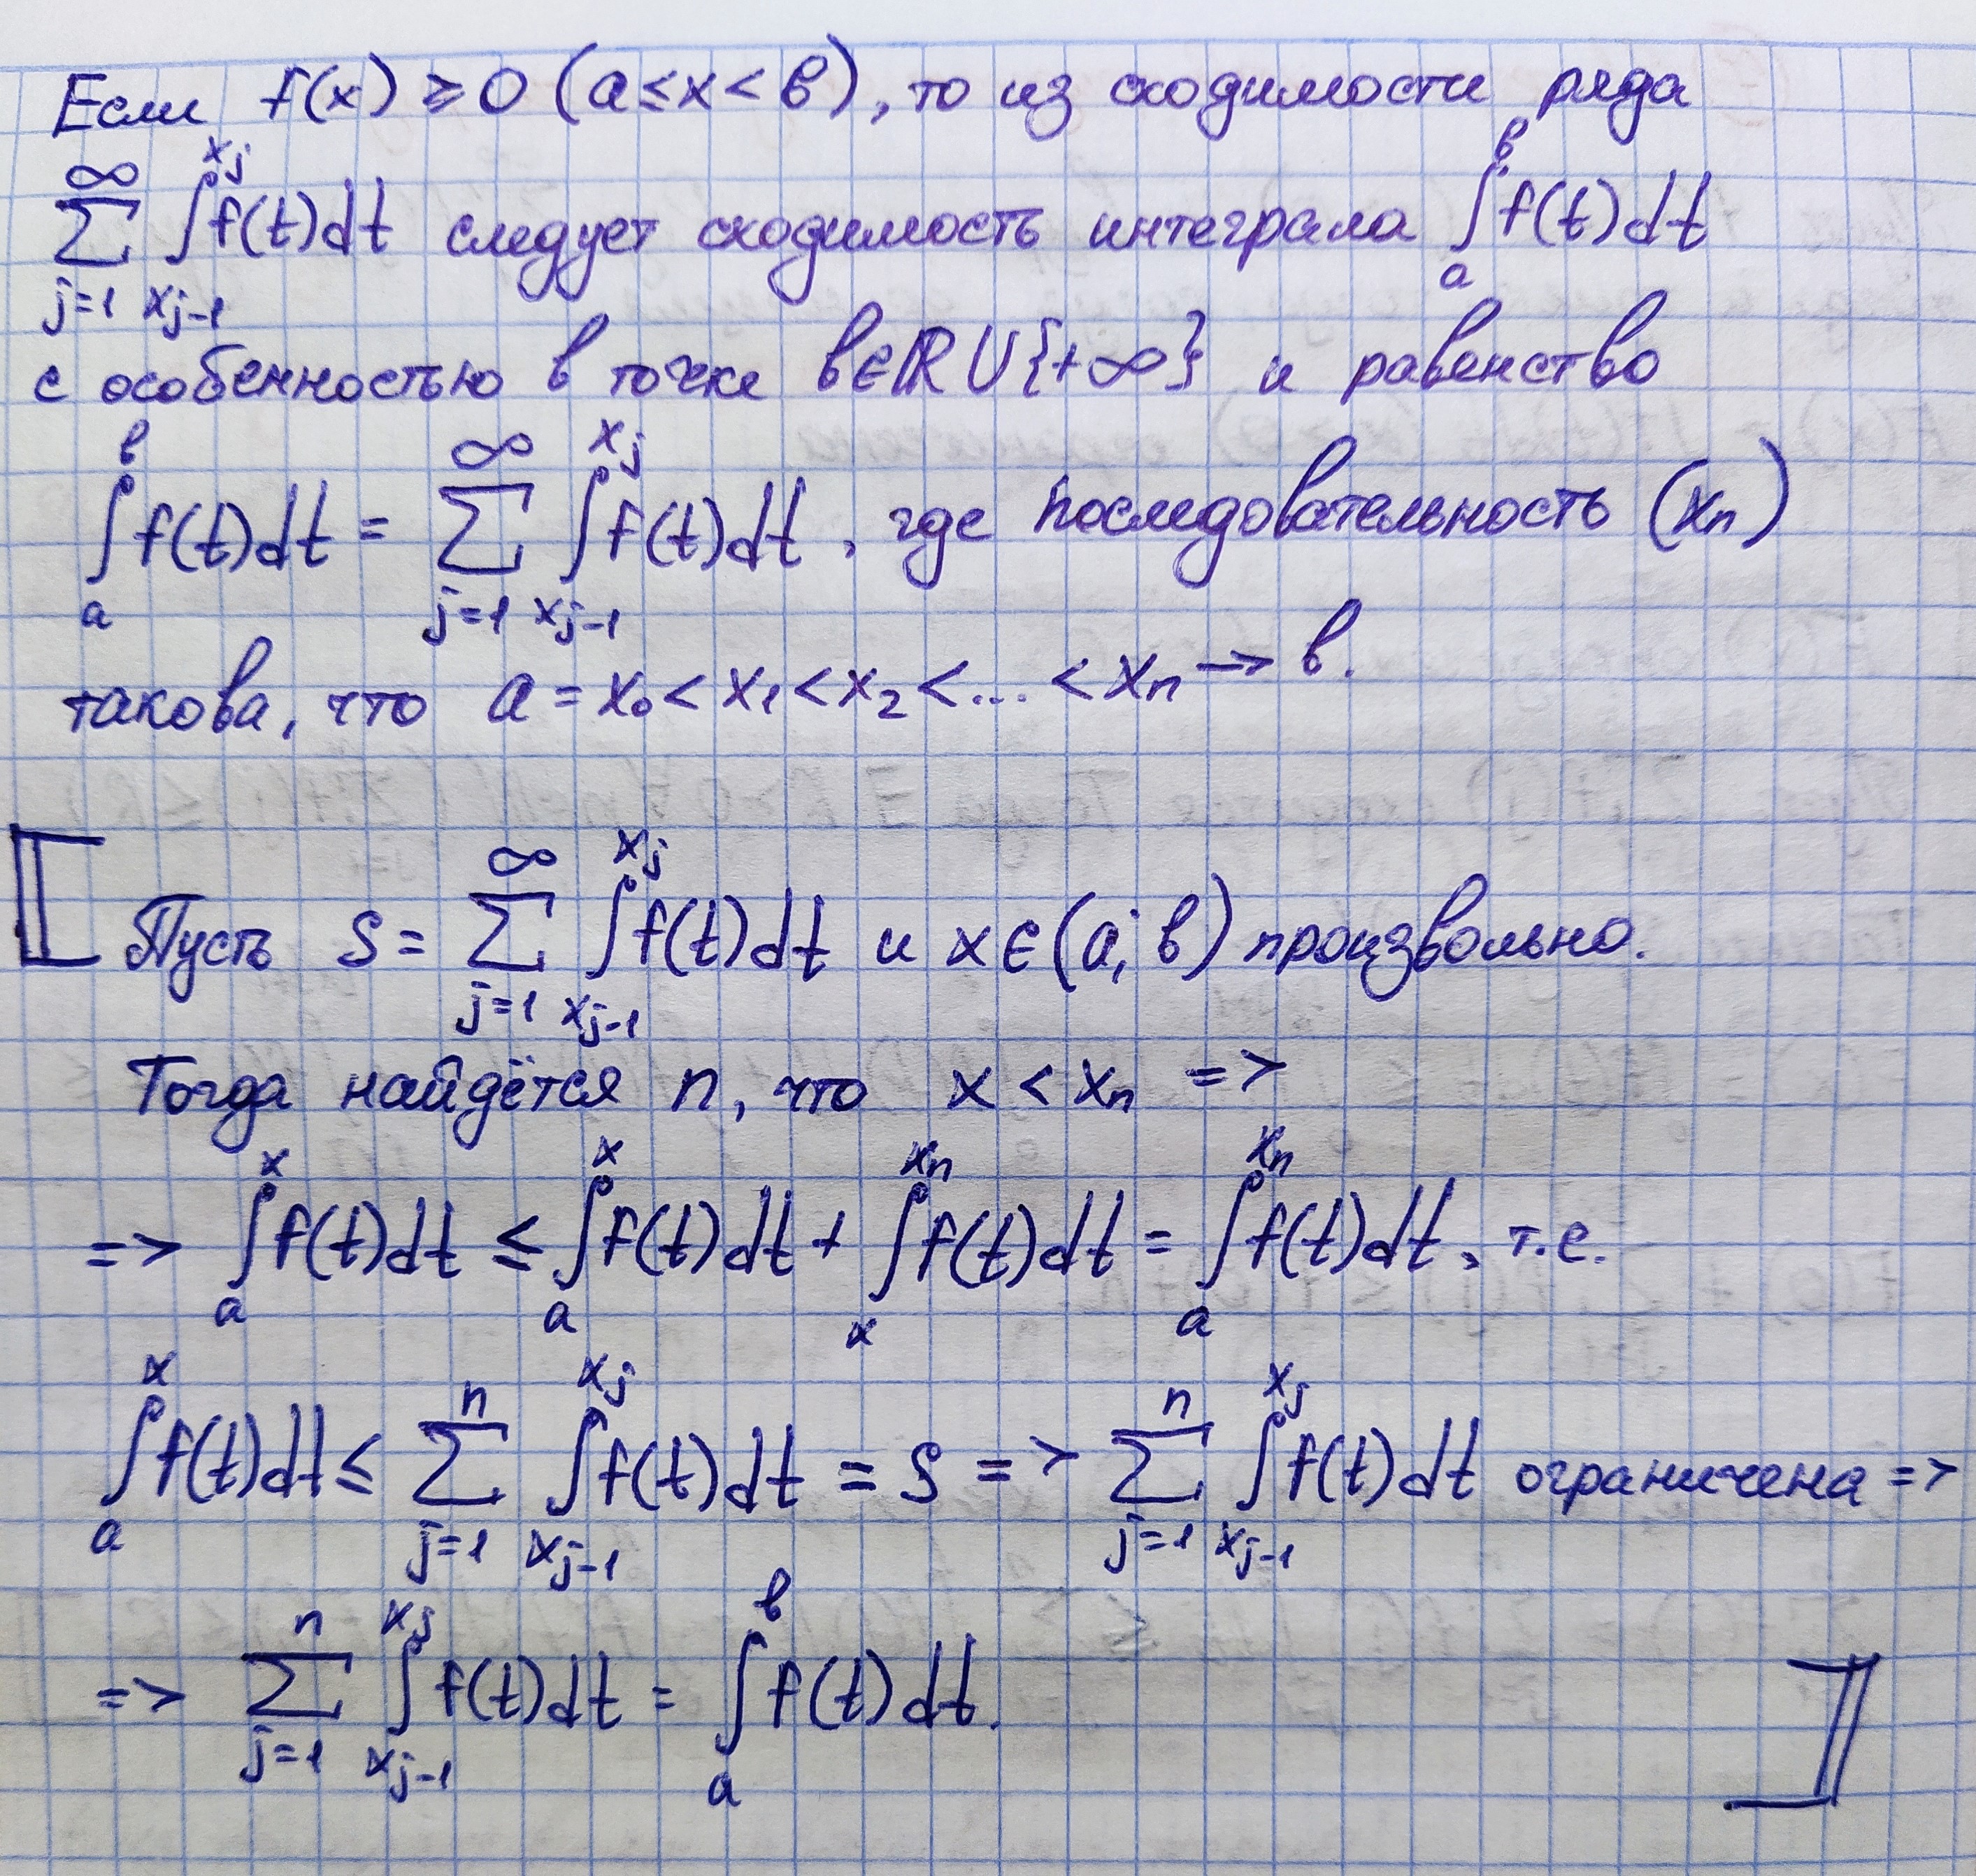 Если f(x) ⩾ 0 (a ≤ x < b), то из сходимости ряда
$\sum_{j=1}^{\infty} \int_{x_{j-1}}^{x_j} f(t)dt$ следует сходимость интеграла $\int_a^b f(t)dt$
с особенностью в точке b∈ℝ∪{+∞} и равенство
$\int_a^b f(t)dt = \sum_{j=1}^{\infty} \int_{x_{j-1}}^{x_j} f(t)dt$, где последовательность $(x_n)$
такова, что $a = x_0 < x_1 < x_2 < ... < x_n \to b$.
⟦ Пусть $S = \sum_{j=1}^{\infty} \int_{x_{j-1}}^{x_j} f(t)dt$ и x∈(a; b) произвольно.
Тогда найдётся n, что $x < x_n$ =>
=> $\int_a^x f(t)dt \leq \int_a^x f(t)dt + \int_x^{x_n} f(t)dt = \int_a^{x_n} f(t)dt$, т.е.
$\int_a^x f(t)dt \leq \sum_{j=1}^{n} \int_{x_{j-1}}^{x_j} f(t)dt = S$ => $\sum_{j=1}^{n} \int_{x_{j-1}}^{x_j} f(t)dt$ ограничена =>
=> $\sum_{j=1}^{n} \int_{x_{j-1}}^{x_j} f(t)dt = \int_a^b f(t)dt$. ⟧